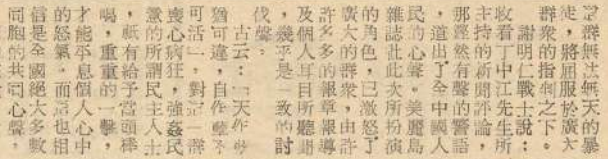 這群無法無天的暴
徒，將屈服於廣大
群衆的指剩之下。
謝明仁戰士說：
收看丁中江先生所
主持的新聞評論，
那鏗然有聲的警語
，道出了全中國人
民的心聲。美麗島
雜誌社此次所扮演
的角色，已激怒了
廣大的群衆，由許
許多多的報章報導
及個人耳目所聽聞
，幾乎是一致的討
伐聲。
古云：「天作孽
猶可違，自作孽不
可活」，對這一群
喪心病狂，強姦民
意的所謂民主人士
，祇有給予當頭棒
喝，重重的一擊，
才能平息個人心中
的怒氣。而這也相
信是全國絕大多數
同胞的共同心聲。